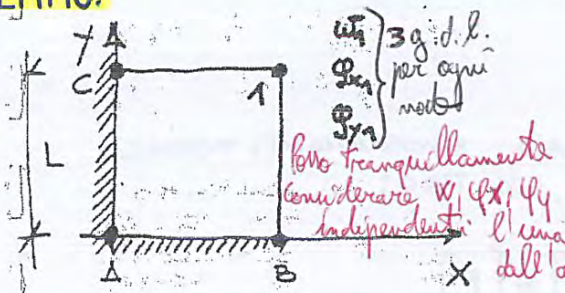 Y
C
1
L
A
B
X
w1
φx1
φy1
3 g.d.l.
per ogni
nodo
Posso tranquillamente
considerare w, φx, φy
indipendenti l'una